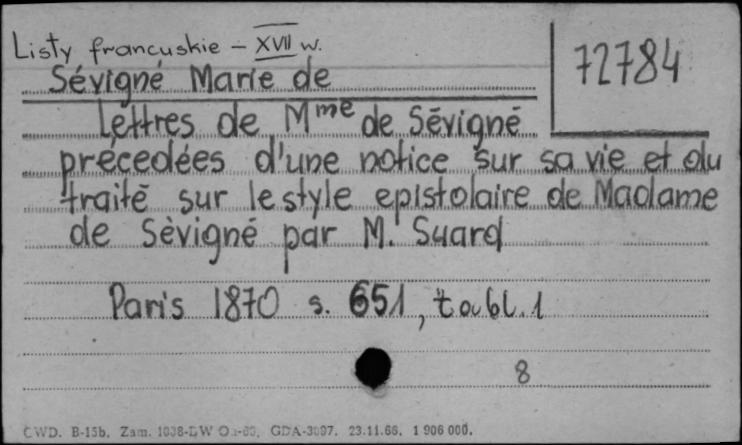 Listy francuskie – XVII w.
72784
Sévigné Marie de
Lettres de Mme de Sévigné
précedées d'une notice sur sa vie et du
traité sur le style epistolaire de Madame
de Sévigné par M. Suard
Paris 1870 s. 651, tabl. 1
8
CWD. B-15b. Zam. GDA-3097. 23.11.66. 1 906 000.